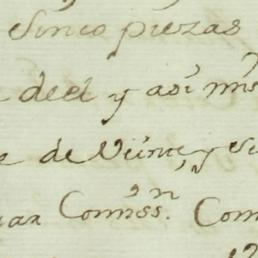 Sinco piezas
deel y asi mis
de Veinte, y si
Commss.n Com